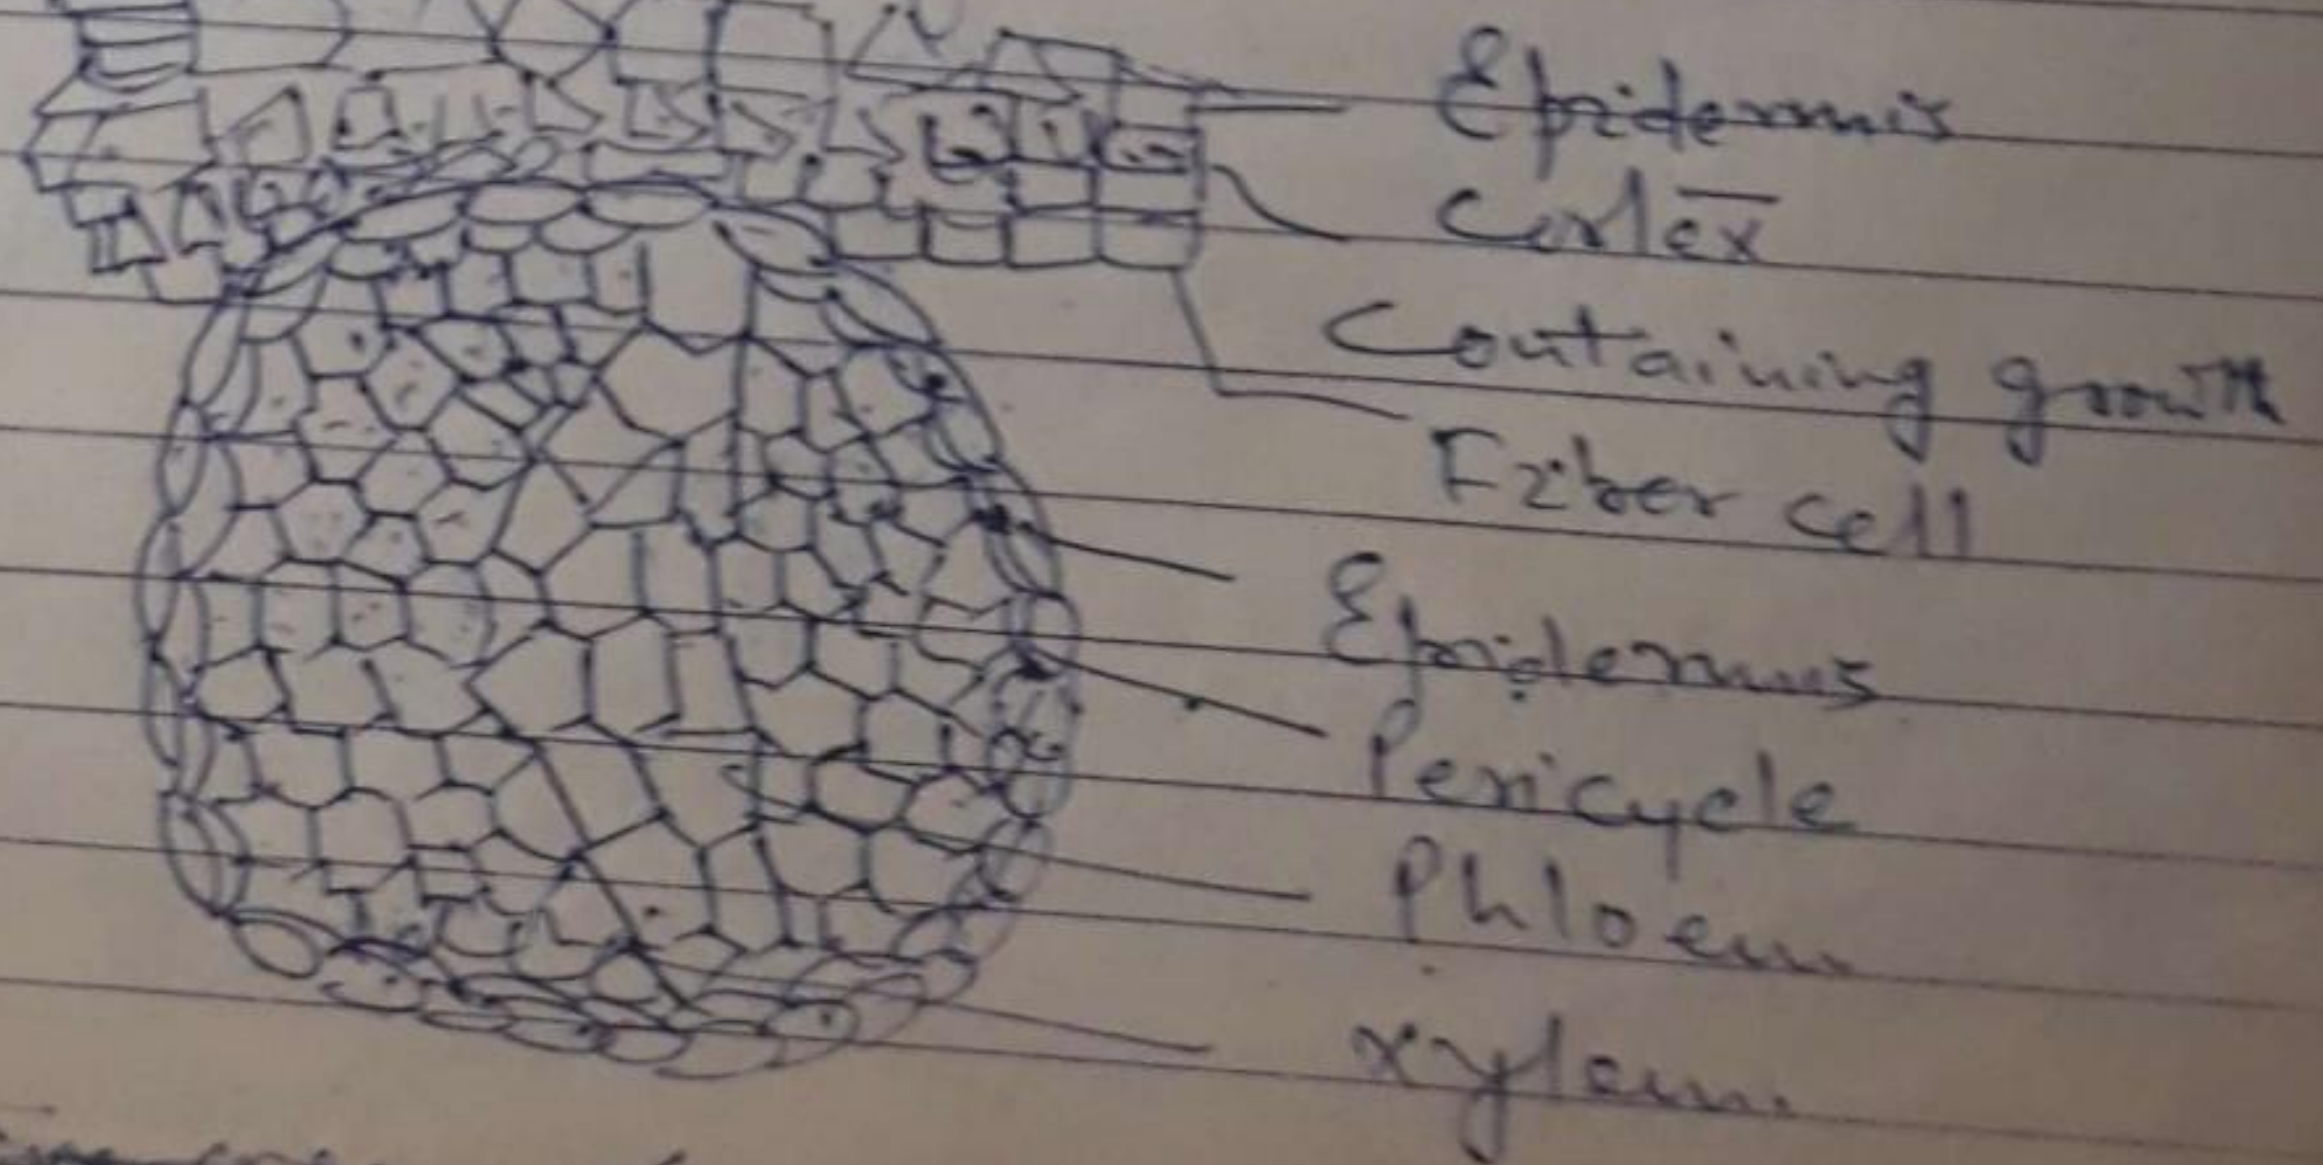 Epidermis
Cortex
Containing growth
Fiber cell
Epidermis
Pericycle
Phloem
xylem.